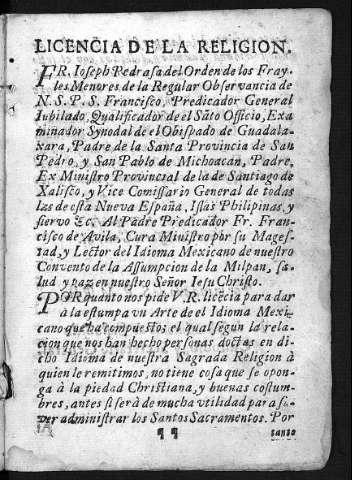 LICENCIA DE LA RELIGION.
FR. Ioseph Pedrasa del Orden de los Fray-
les Menores de la Regular Observancia de
N. S. P. S. Francisco, Predicador General
Iubilado, Qualificador de el Sãto Officio, Exa
minador Synodal de el Obispado de Guadala-
xara, Padre de la Santa Provincia de San
Pedro, y San Pablo de Michoacán, Padre,
Ex Ministro Provincial de la de Santiago de
Xalisco, y Vice Comissario General de todas
las de esta Nueva España, Islas Philipinas, y
siervo &c. Al Padre Predicador Fr. Fran-
cisco de Avila, Cura Ministro por su Mages-
tad, y Lector del Idioma Mexicano de nuestro
Convento de la Assumpcion de la Milpan, sa-
lud y paz en nuestro Señor Iesu Christo.
POR quanto nos pide V. R. licēcia para dar
à la estampa vn Arte de el Idioma Mexi-
cano que ha compuesto; el qual segun la rela-
cion que nos han hecho personas doctas en di-
cho Idioma de nuestra Sagrada Religion à
quien le remitimos, no tiene cosa que se opon-
ga à la piedad Christiana, y buenas costum-
bres, antes si serà de mucha vtilidad para sa-
ver administrar los Santos Sacramentos. Por
¶¶ tanto